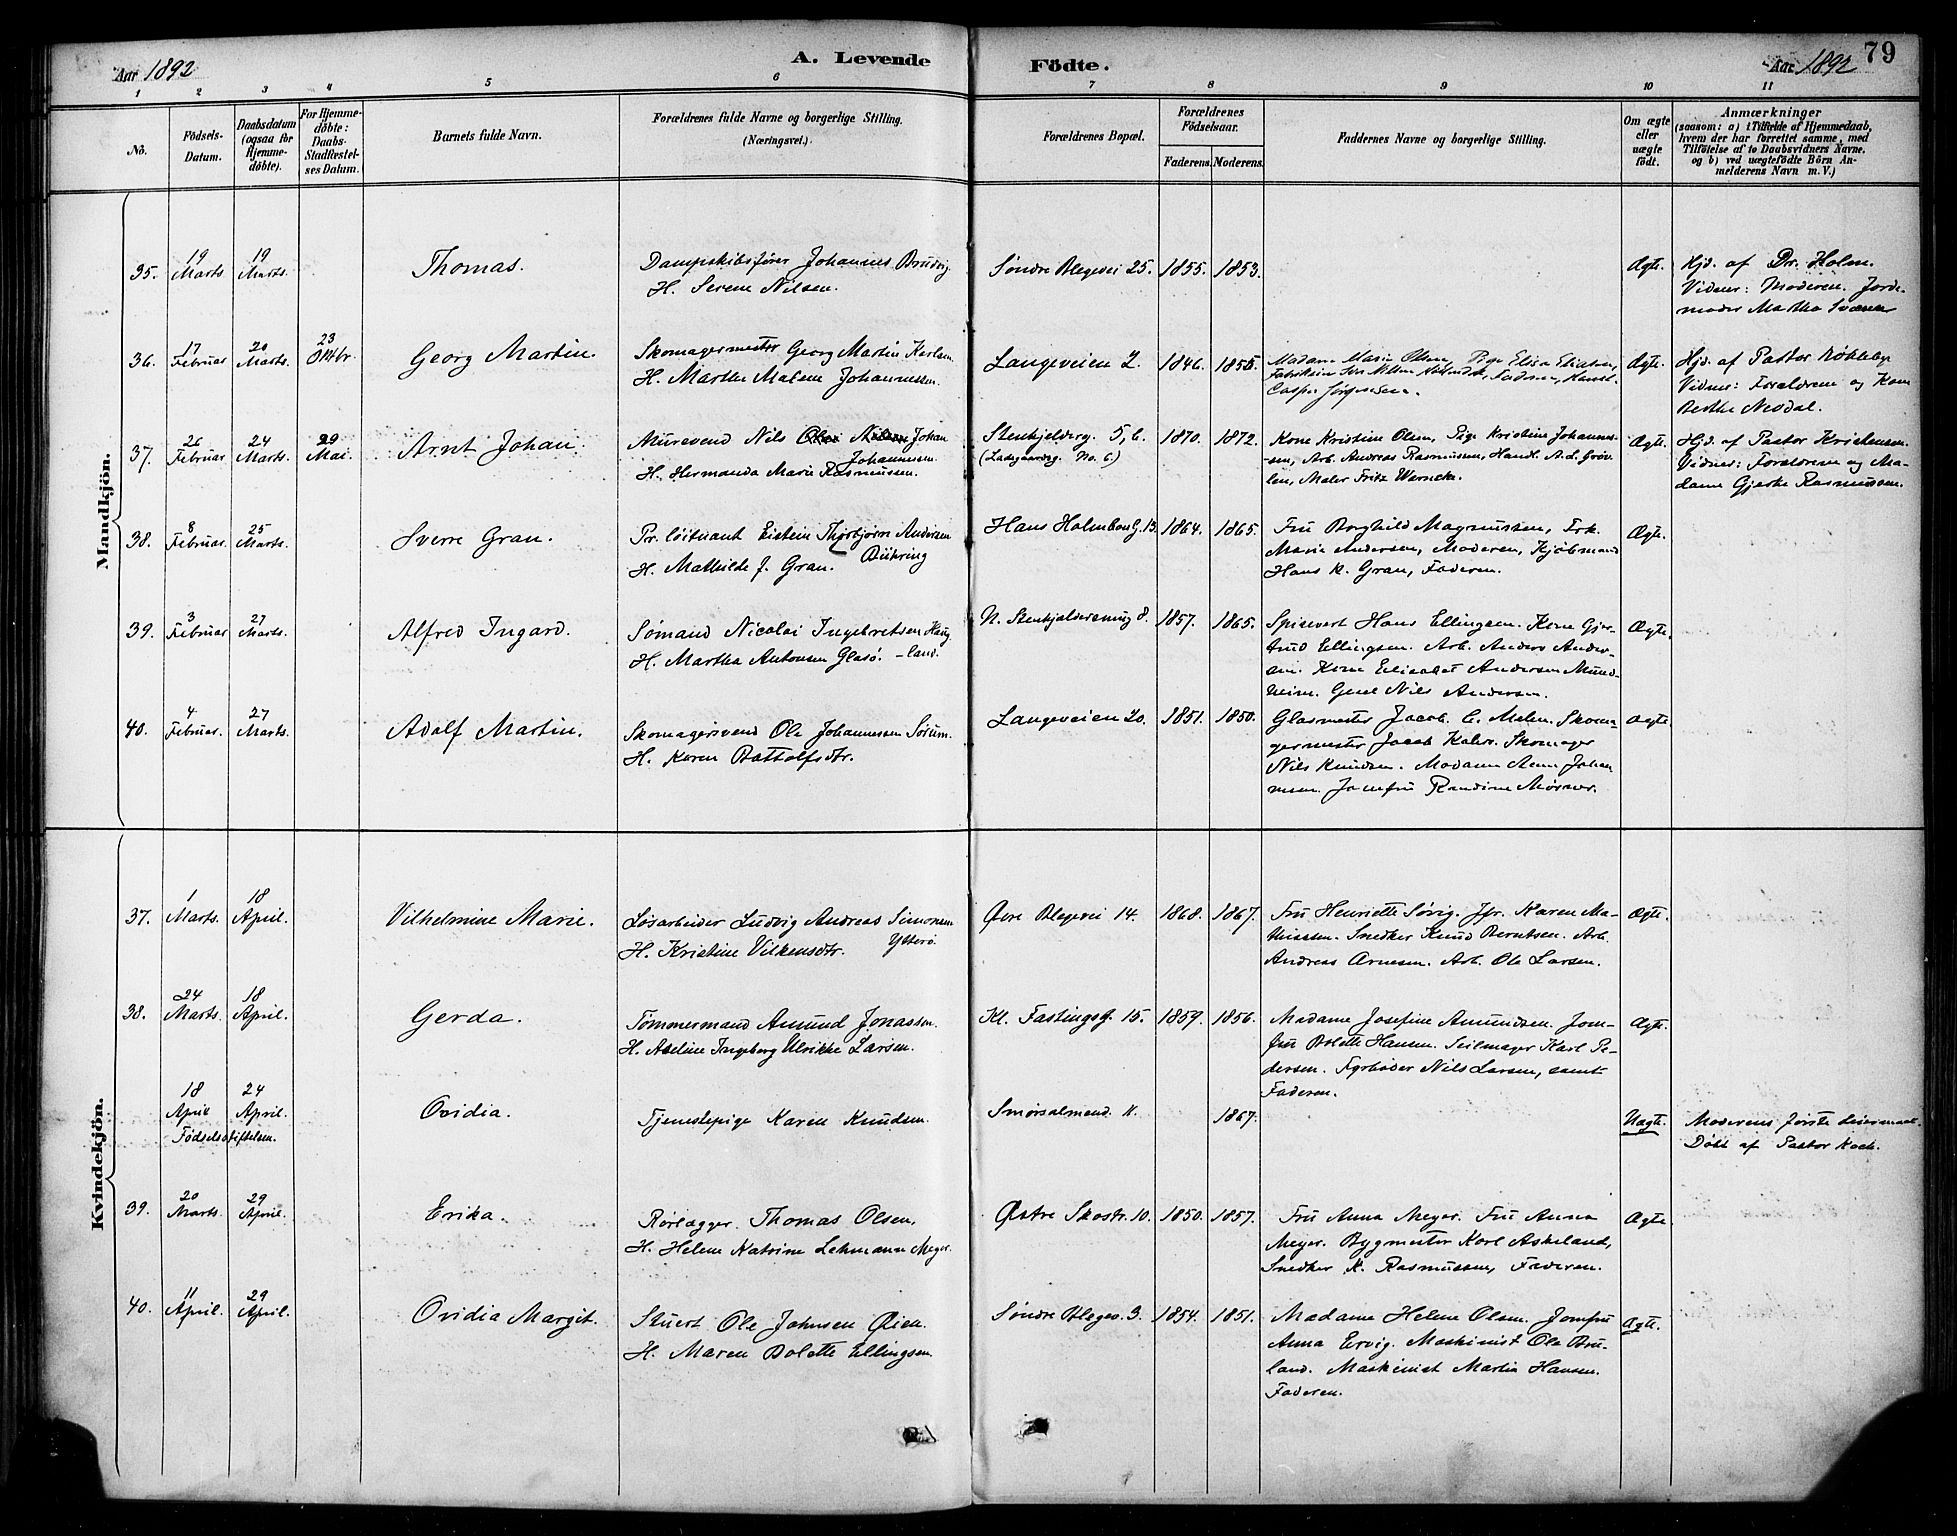 Aar 1892
A. Levende
Födte.
Aar 1892
79
1 2 3 4 5 6 7 8 9 10 11
No.
Födsels-
Datum.
Daabsdatum
(ogsaa for
Hjemme-
döbte).
For Hjemme-
döbte:
Daabs-
Stadfæstel-
ses Datum.
Barnets fulde Navn.
Forældrenes fulde Navne og borgerlige Stilling.
(Næringsvei.)
Forældrenes Bopæl.
Forældrenes
Födselsaar.
Faderens. Moderens.
Faddernes Navne og borgerlige Stilling.
Om ægte
eller
uægte
födt.
Anmærkninger
(saasom: a) i Tilfælde af Hjemmedaab,
hvem der har forrettet samme, med
Tilföielse af to Daabsvidners Navne.
og b) ved uægtefödte Börn An-
melderens Navn m. V.)
Mandkjön.
35.
19
Marts
19
Marts.
Thomas.
Dampskibsfører Johannes Brudvig
H. Serene Nilsen.
Søndre Blegevei 25.
1855. 1853.
Ægte.
Hjd. af Dr. Holm.
Vidner: Moderen. Jorde-
moder Martha
36.
17
Februar
20
Marts.
23
Oktbr.
Georg Martin.
Skomagermester Georg Martin Karlsen
H. Marthe Malene Johannessen.
Langeveien 2.
1846. 1855.
Madame Marie Olsen, Pige Elisa
Casper Jørgensen.
Ægte.
Hjd. af Pastor Løkleby
Vidner: Forældrene og Kone
Berthe Neodal.
37.
26
Februar
24
Marts.
29
Mai.
Arnt Johan.
Muresvend Nils Johan
Johannesen.
H. Hermanda Marie Rasmussen.
Stenkjelderg. 5, 6.
(Ladegaardsg. No. 6)
1870. 1872.
Kone Kristine Olsen, Pige Kristine Johannes-
sen, Arb. Andreas Rasmussen, Handl. A. L. Grøv-
len, Maler Fritz Werncke.
Ægte.
Hjd. af Pastor Kristensen.
Vidner: Forældrene og Ma-
dame Gjerthe Rasmussen.
38.
8
Februar
25
Marts.
Sverre Gran.
Pr. løitnant Eistein Thorbjørn Andersen
Bühring
H. Mathilde J. Gran.
Hans Holmboeg. 13.
1864. 1865.
Fru Borghild Magnussen, Frk.
Marie Andersen, Moderen, Kjøbmand
Hans K. Gran, Faderen.
Ægte.
39.
3
Februar
27
Marts.
Alfred Ingard.
Sømand Nicolai Ingebretsen Haug
-land.
H. Martha Antonsen Glasø.
N. Stenkjeldersmug 8.
1857. 1865.
Spisevert Hans Ellingsen. Kone Gjer-
trud Ellingsen. Arb. Anders Ander-
sen. Kone Elisabet Andersen Mund-
heim. Gesel Nils Andersen.
Ægte.
40.
4
Februar.
27
Marts.
Adolf Martin.
Skomagersvend Ole Johannessen Sørum.
H. Karen Bottolfsdtr.
Langeveien 20.
1851. 1850.
Glasmester Jacob C. Malen. Skoma-
germester Jacob Kahrs. Skomager
Nils Knudsen. Madame Anna Johan-
nesen. Jomfru Randine
Ægte.
Kvindekjön.
37.
1
Marts.
18
April.
Vilhelmine Marie.
Løsarbeider Ludvig Andreas Simonsen
Ytterø.
H. Kristine Vilkensdtr.
Øvre Blegevei 14.
1868. 1867.
Fru Henriette Søvig. Jfr. Karen Ma-
thissen. Snedker Knud Berntsen. Arb.
Andreas Arnesen. Arb. Ole Larsen.
Ægte.
38.
24
Marts.
18
April.
Gerda.
Tømmermand Amund Jonassen.
H. Abeline Ingeborg Ulrikke Larsen.
Kl. Fastingsg. 15.
1859. 1856.
Madame Josefine Amundsen. Jom-
fru Bolette Hansen. Seilmager Karl Pe-
dersen. Fyrbøder Nils Larsen, samt
Faderen.
Ægte.
18
April
24
April.
Fødselsstiftelsen.
Ovidia.
Tjenestepige Karen Knudsen.
Smørsalmend. 11.
1867.
Uægte.
Moderens første Leiermaal.
Døbt af Pastor Koch.
39.
20
Marts.
29
April.
Erika.
Rørlægger. Thomas Olsen,
H. Helene Katrine Lehmann Meyer.
Østre Skostr. 10.
1850. 1857.
Fru Anna Meyer. Fru Anna
Meyer. Bygmester Karl Askeland,
Snedker K. Rasmussen, Faderen.
Ægte.
40.
11
April.
29
April.
Ovidia Margit.
Stuert Ole Johnsen Øien.
H. Maren Bolette Ellingsen.
Søndre Blegev. 3.
1854. 1851.
Madame Helene Olsen. Jomfru
Anna Ervig. Maskinist Ole Bru-
land. Maskinist Martin Hansen.
Faderen.
Ægte.